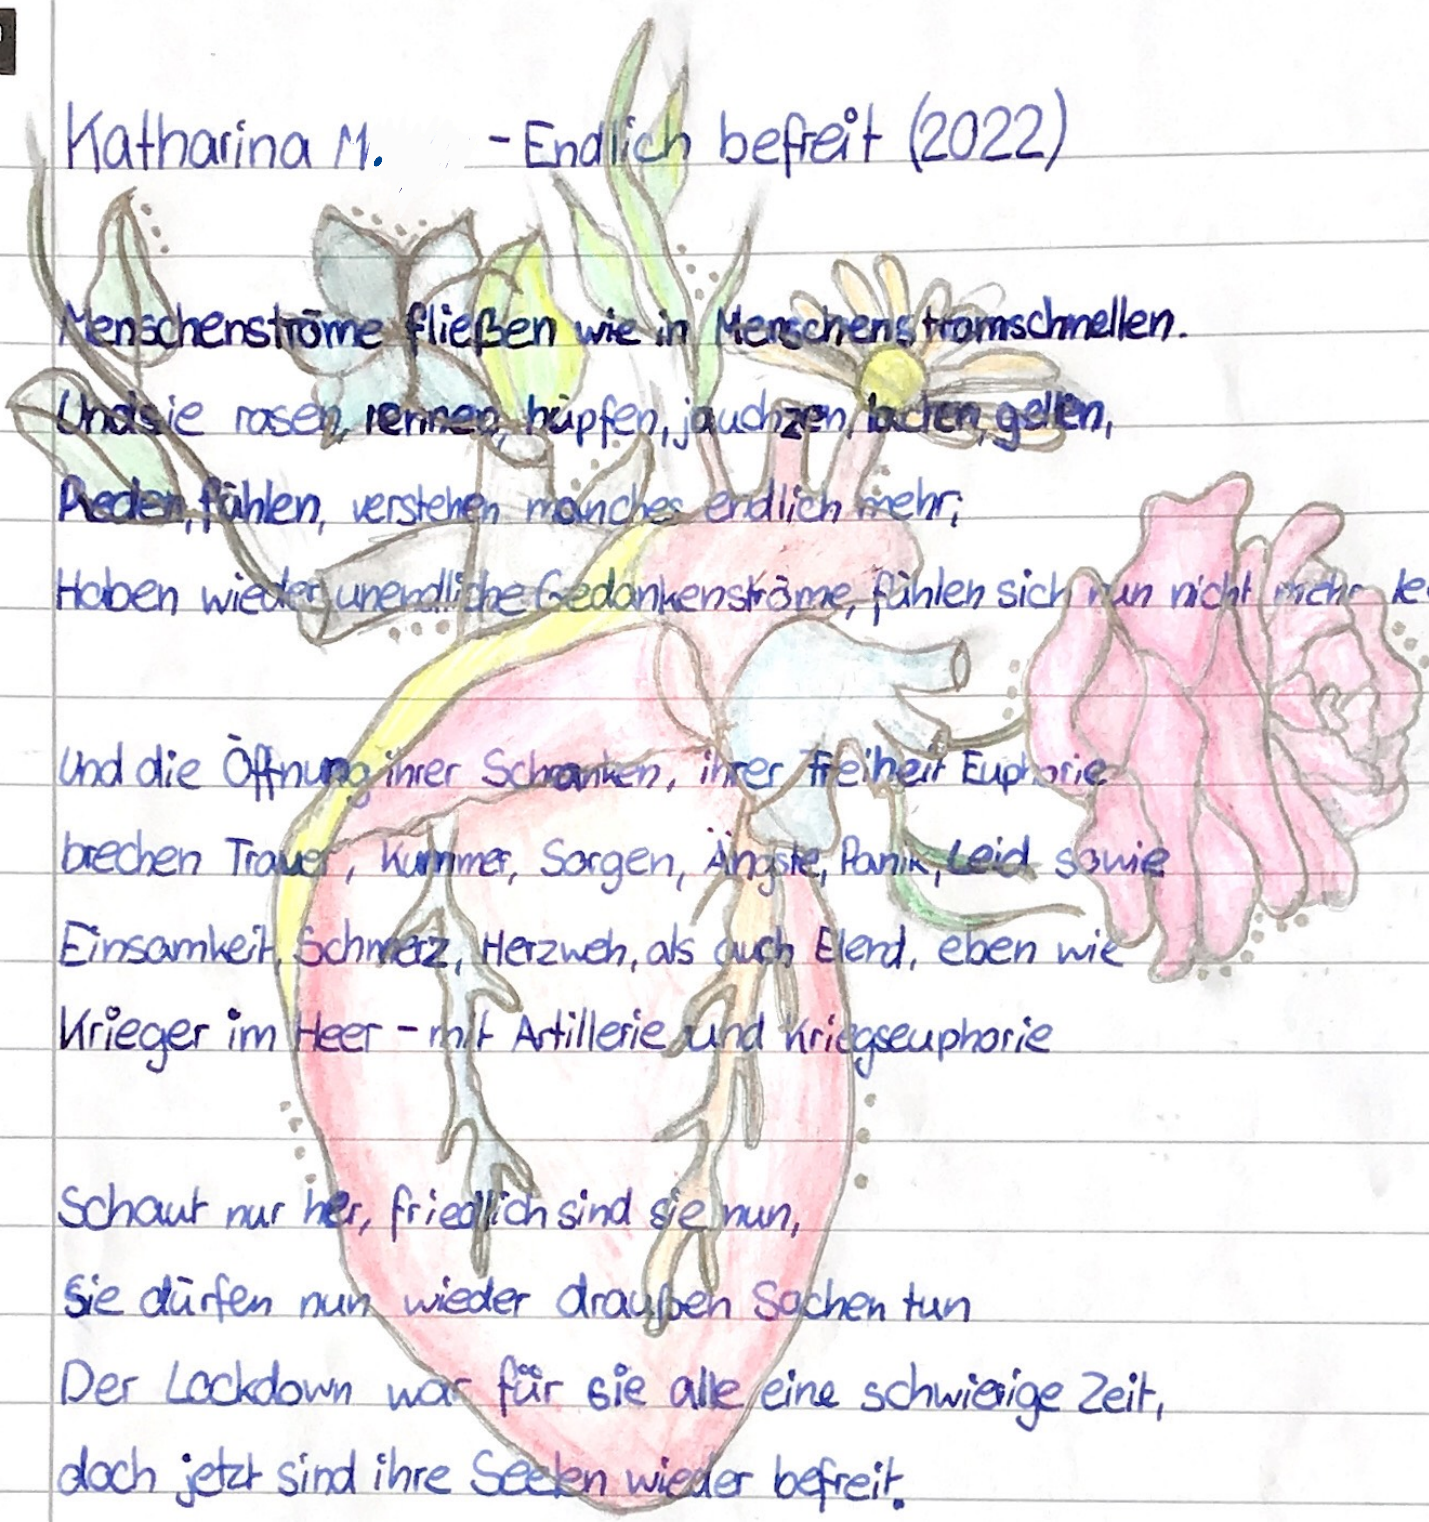 Katharina M. - Endlich befreit (2022)
Menschenströme fließen wie in Menschenstromschnellen.
Und sie rasen, rennen, hüpfen, jauchzen, lachen, gellen,
Reden, fühlen, verstehen manches endlich mehr;
Haben wieder unendliche Gedankenströme, fühlen sich nun nicht mehr le
Und die Öffnung ihrer Schranken, ihrer Freiheit Euphorie
brechen Trauer, Kummer, Sorgen, Ängste, Panik, Leid sowie
Einsamkeit, Schmerz, Herzweh, als auch Elend, eben wie
Krieger im Heer - mit Artillerie und Kriegseuphorie
Schaut nur her, friedlich sind sie nun,
Sie dürfen nun wieder draußen Sachen tun
Der Lockdown war für sie alle eine schwierige Zeit,
doch jetzt sind ihre Seelen wieder befreit.